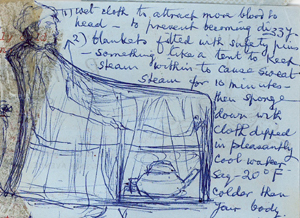 1) wet cloth to attract more blood to
head - to prevent becoming dizzy.
2) blankets fitted with safety pins
- something like a tent to keep
steam within to cause sweat
steam for 10 minutes -
then sponge
down with
cloth dipped
in pleasantly
cool water
say - 20° F
colder than
your body